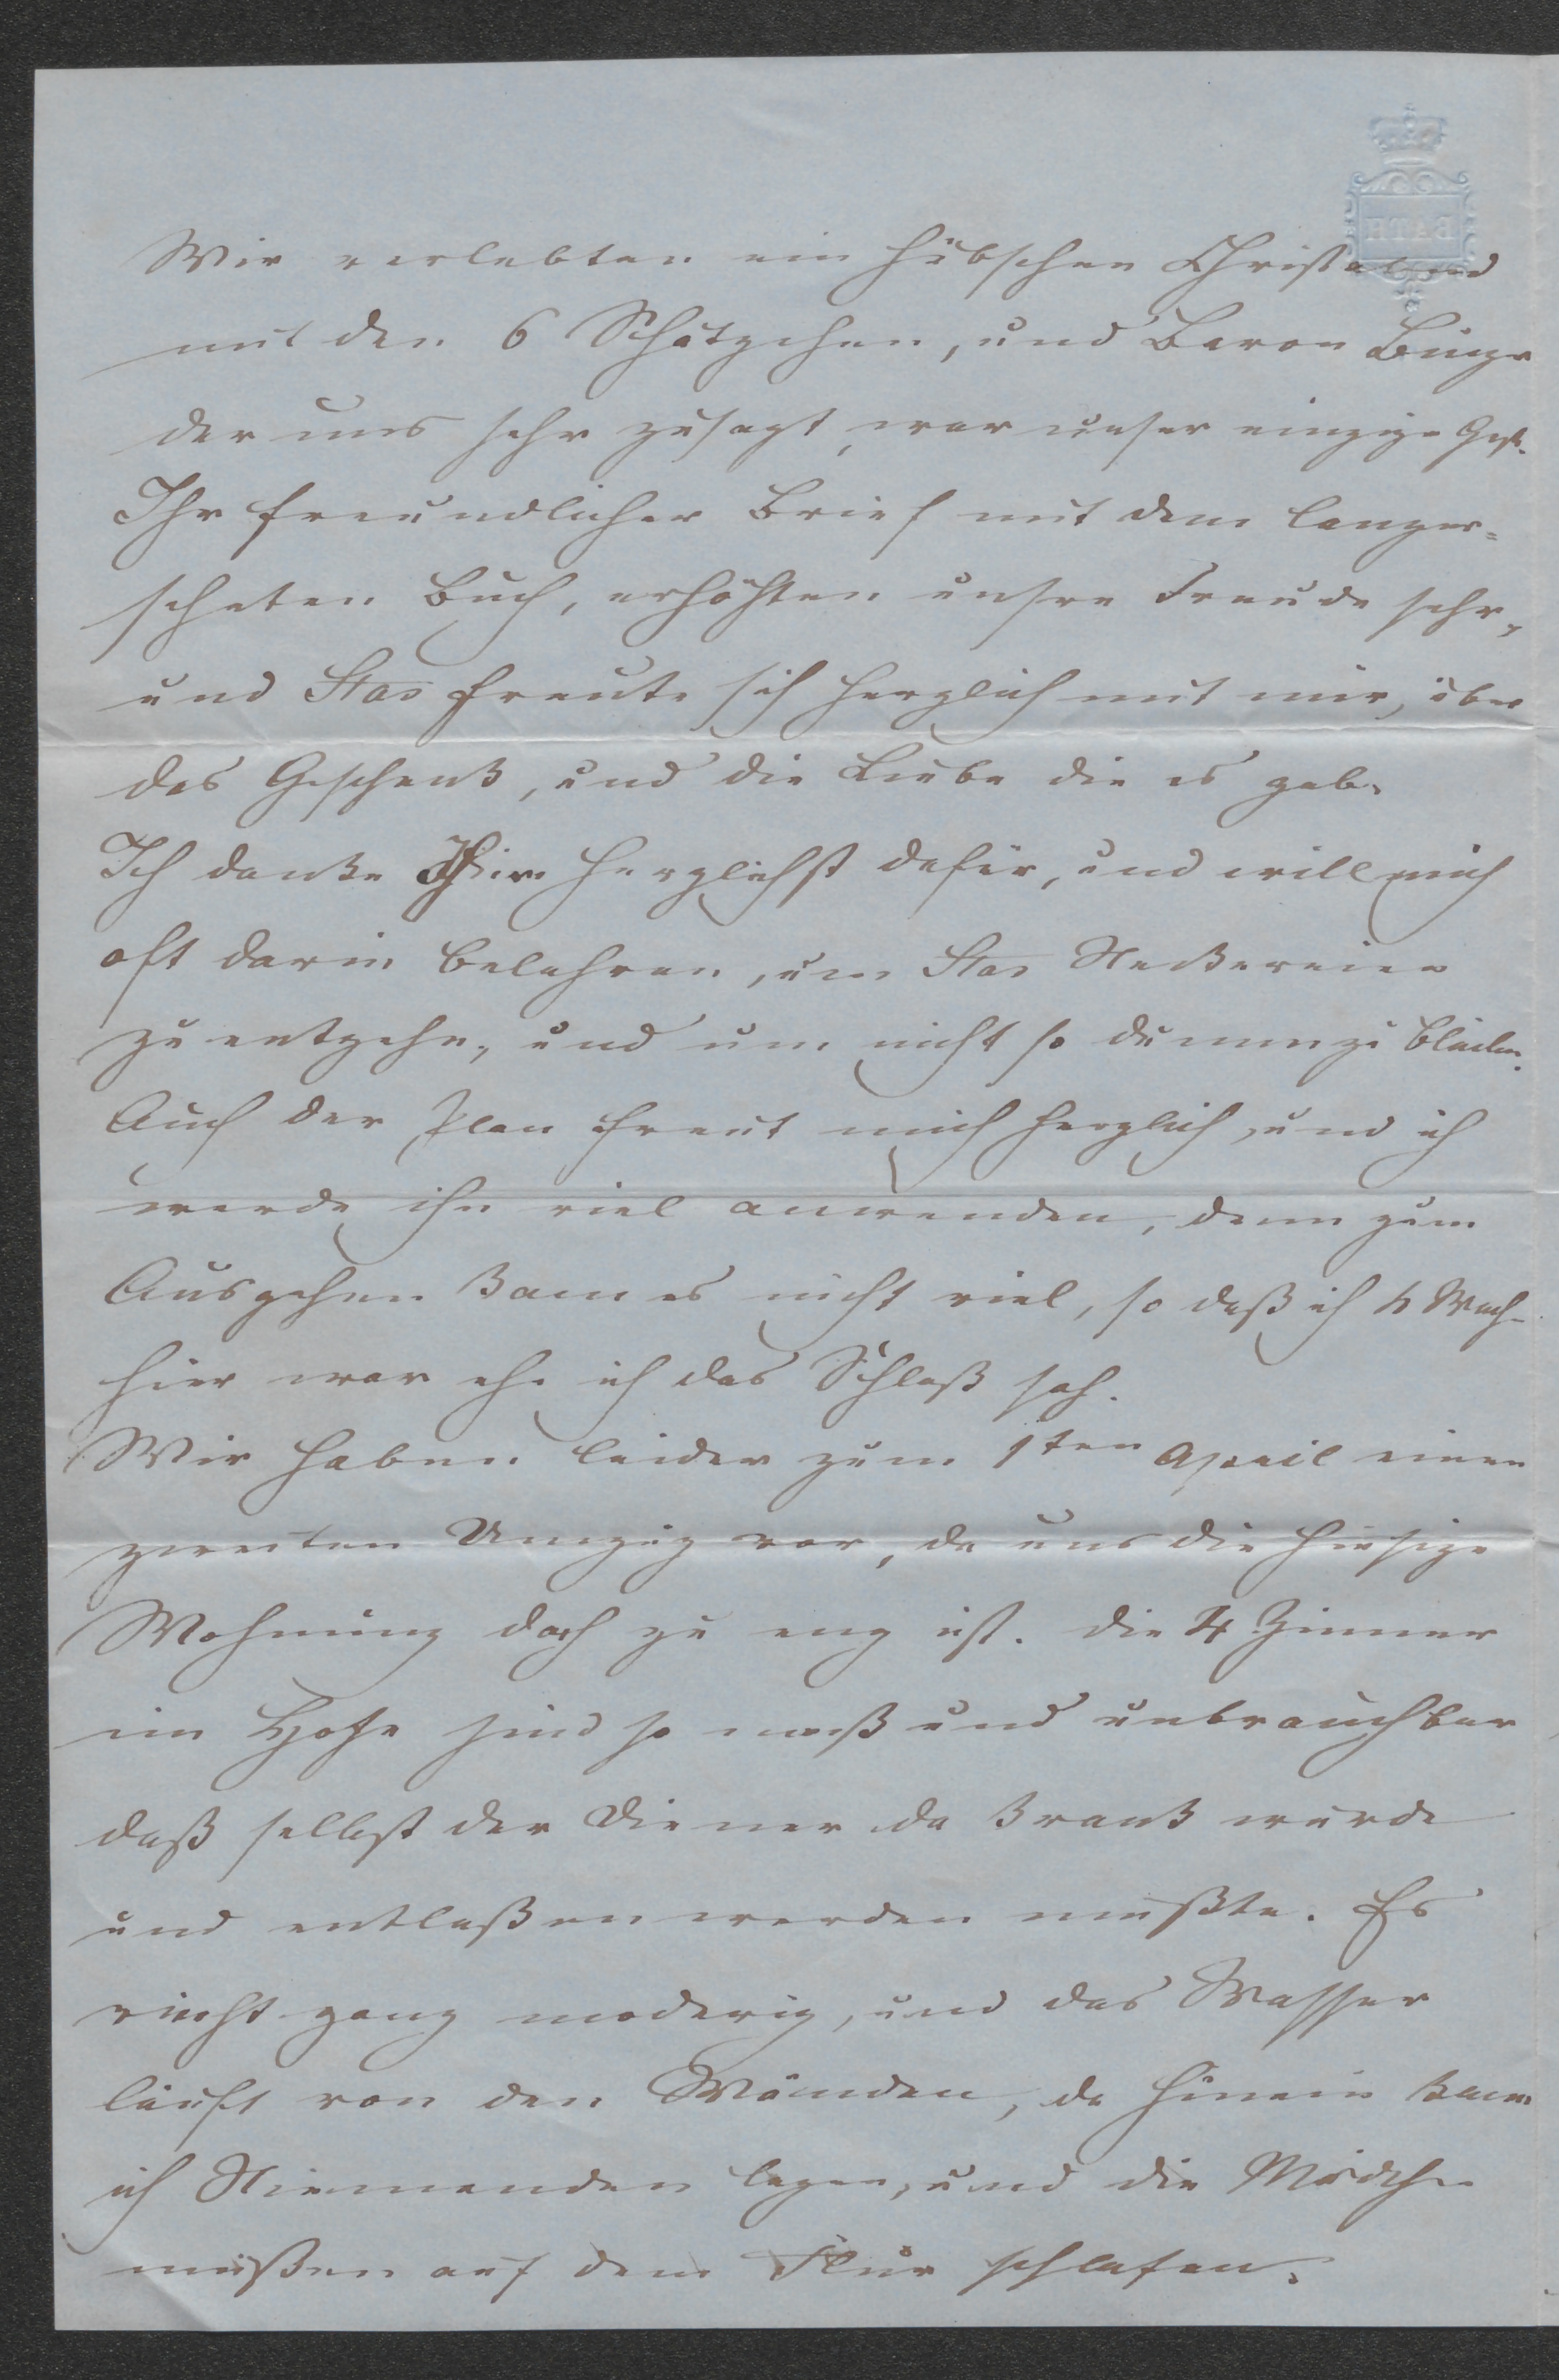 BATH
Wir verlebten ein hübschen Christabend
mit den 6 Schätzchen, und Baron
der uns sehr zusagt, war unser einzige Gast.
Ihr freundlicher Brief mit dem langer=
sehnten Buch, erhöhten unsre Freude sehr,
und Stas freute sich herzlich mit mir, über
das Geschenk, und die Liebe die es gab.
Ich danke herzlichst dafür, und will mich
oft darin belehren, um Stas Neckereien
zu entgehn, und um nicht so dumm zu bleiben.
Auch der Plan freut mich herzlich, und ich
werde ihn viel anwenden, denn zum
Ausgehen kam es nicht viel, so daß ich 4 Woch
hier war ehe ich das Schloß sah.
Wir haben leider zum 1ten April einen
zweiten Umzug vor, da uns die hiesige
Wohnung doch zu eng ist. die 4 Zimmer
im Hofe sind so naß und unbrauchbar
daß selbst der Diener da krank wurde
und entlaßen werden mußte. Es
riecht ganz moderig, und das Wasser
läuft von den Wänden, da hinein kann
ich Niemanden legen, und die Mädchen
müßen auf dem Flur schlafen.